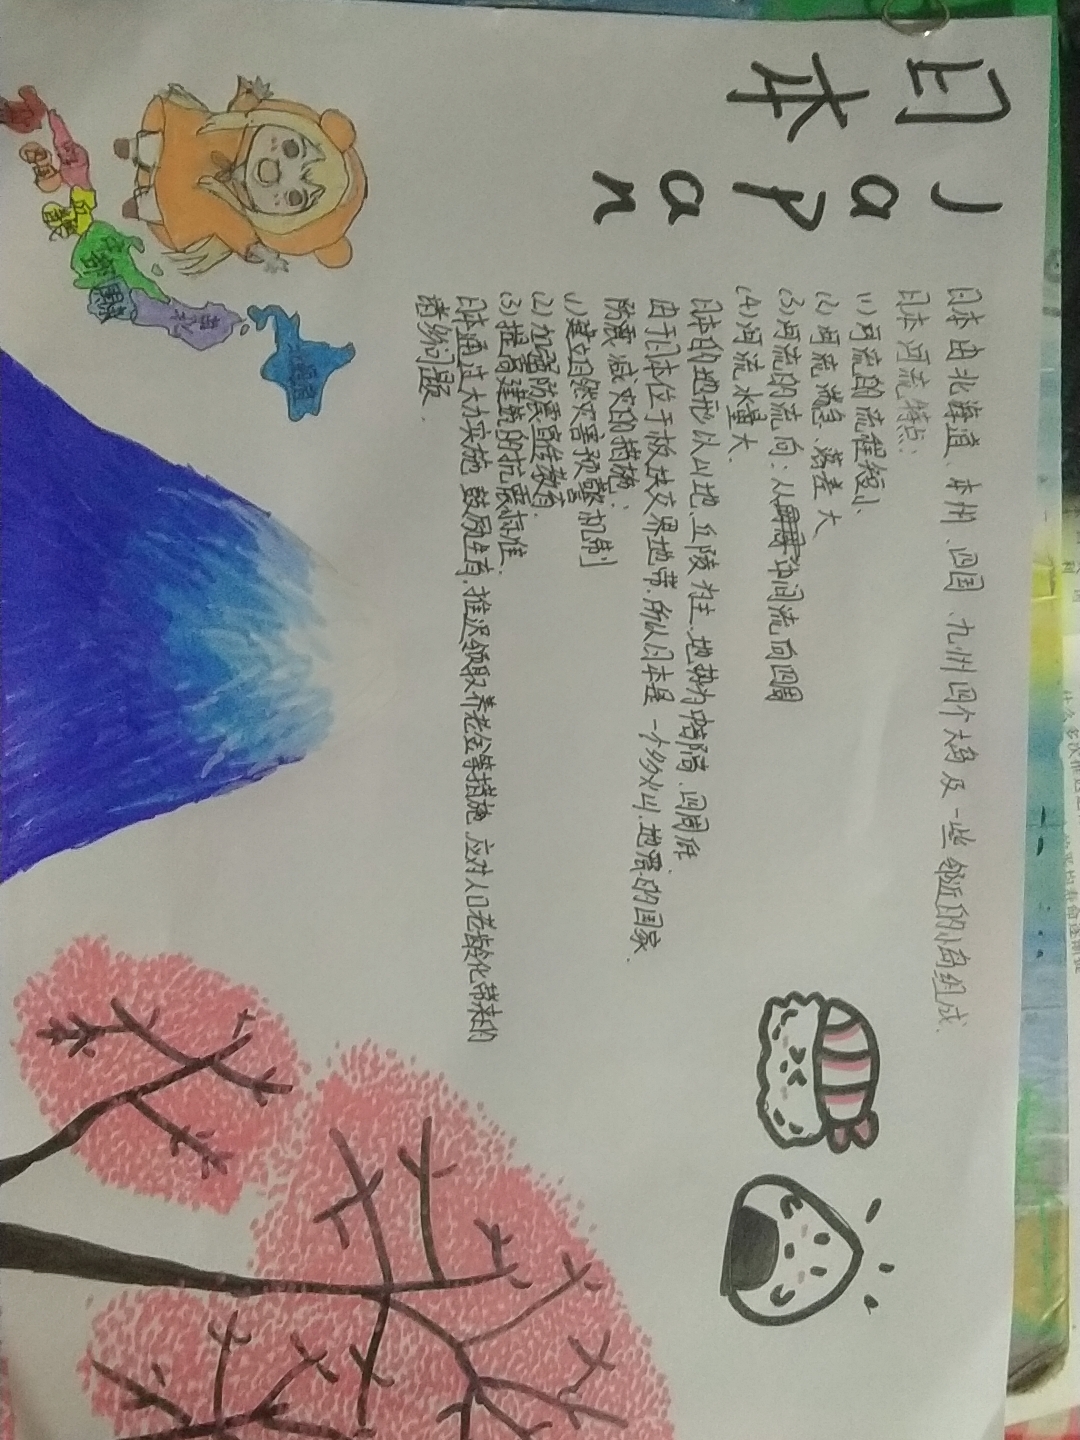 日本
Japan
日本由北海道、本州、四国、九州四个大岛及一些邻近的小岛组成.
日本河流特点:
(1)河流的流程短小、
(2)河流湍急、落差大
(3)河流的流向:从中间流向四周
(4)河流水量大.
日本的地形以山地、丘陵为主,地势为中部高、四周低
由于日本位于板块交界地带,所以日本是一个多火山、地震的国家.
防震减灾的措施:
(1)建立自然灾害预警机制
(2)加强防震宣传教育.
(3)提高建筑的抗震标准.
日本通过大力实施鼓励生育,推迟领取养老金等措施,应对人口老龄化带来的
番纷问题.
北海道
东北
关东
中部
四国